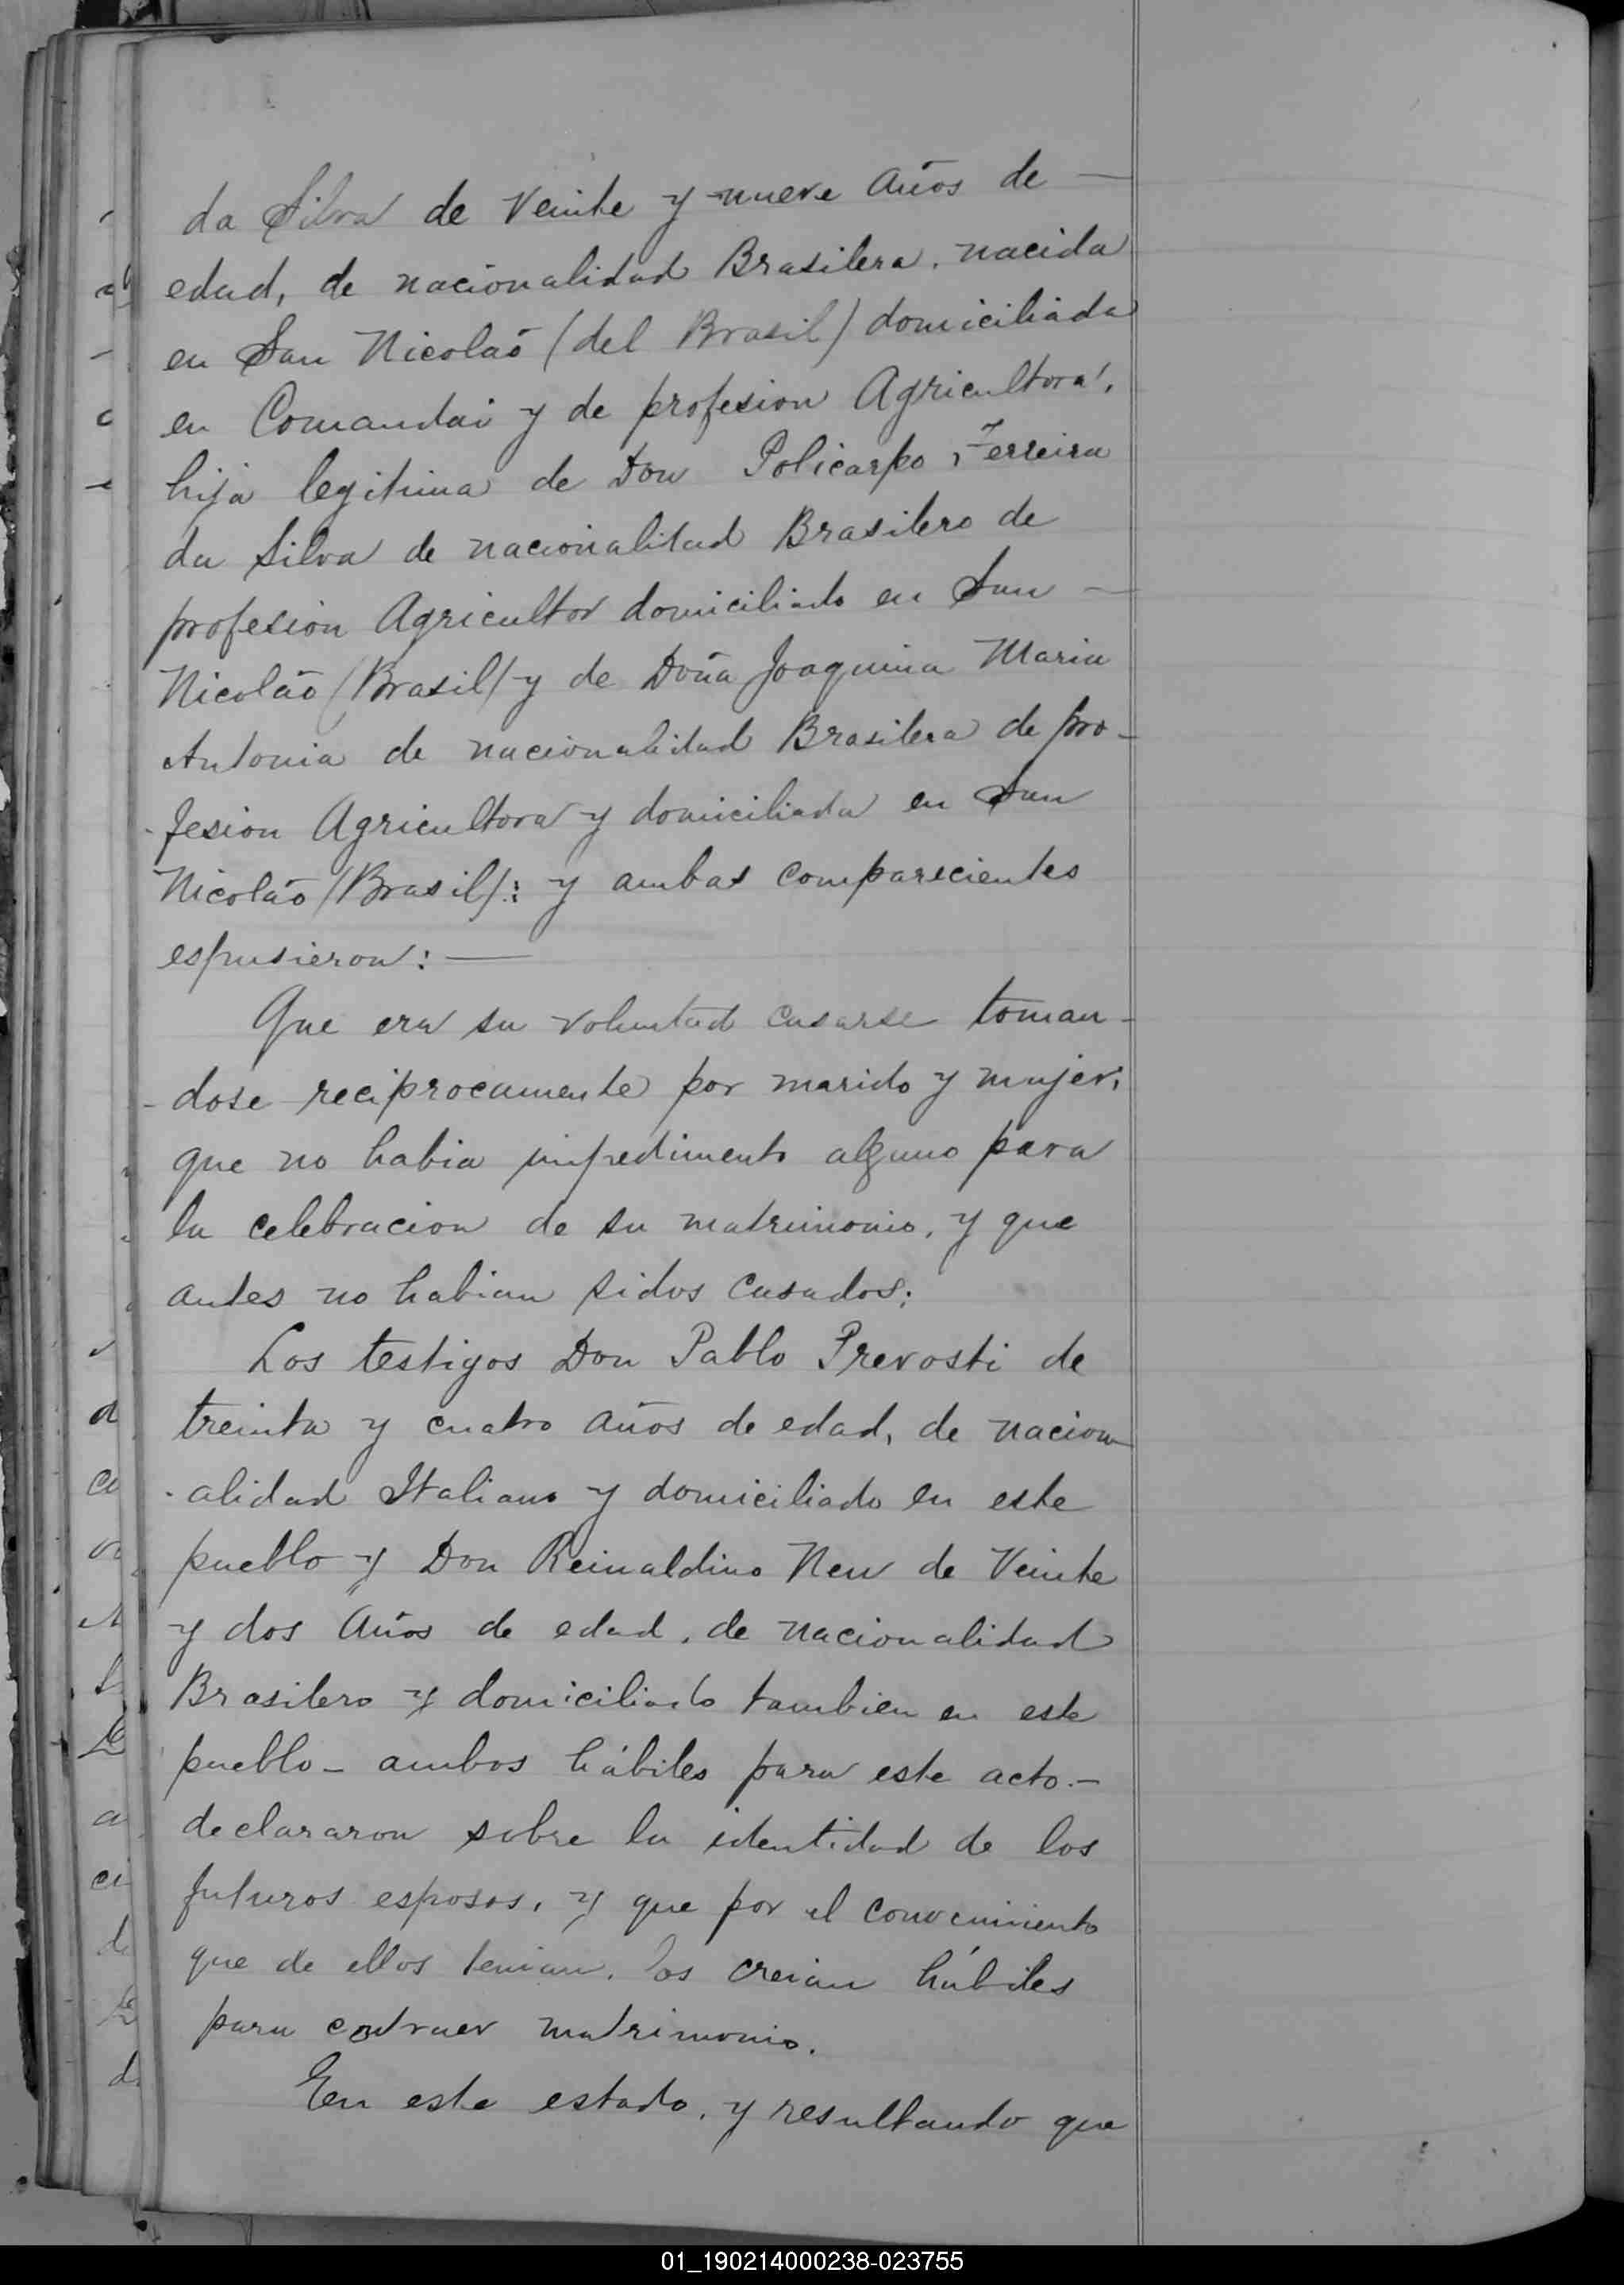 da Silva de Veinte y nueve años de —
edad, de nacionalidad Brasilera, nacida
en San Nicolaõ (del Brasil) domiciliada
en Comandai y de profesion Agricultora,
hija legitima de Don Policarpo Ferreira
da Silva de nacionalidad Brasilero de
profesion Agricultor domiciliado en San —
Nicolaõ (Brasil) y de Doña Joaquina Maria
Antonia de nacionalidad Brasilera de pro-
-fesion Agricultora y domiciliada en San
Nicolaõ (Brasil): y ambas comparecientes
espusieron: —
Que era su voluntad casarse toman-
-dose reciprocamente por marido y mujer,
que no habia impedimento alguno para
la celebracion de su matrimonio, y que
antes no habian sidos casados;
Los testigos Don Pablo Prevosti de
treinta y cuatro años de edad, de nacion-
-alidad Italiano y domiciliado en este
pueblo y Don Reinaldino New de Veinte
y dos años de edad, de nacionalidad
Brasilero y domiciliado tambien en este
pueblo - ambos hábiles para este acto. -
declararon sobre la identidad de los
futuros esposos, y que por el conocimiento
que de ellos tenian, los creian hábiles
para contraer matrimonio.
En este estado, y resultando que
01_190214000238-023755